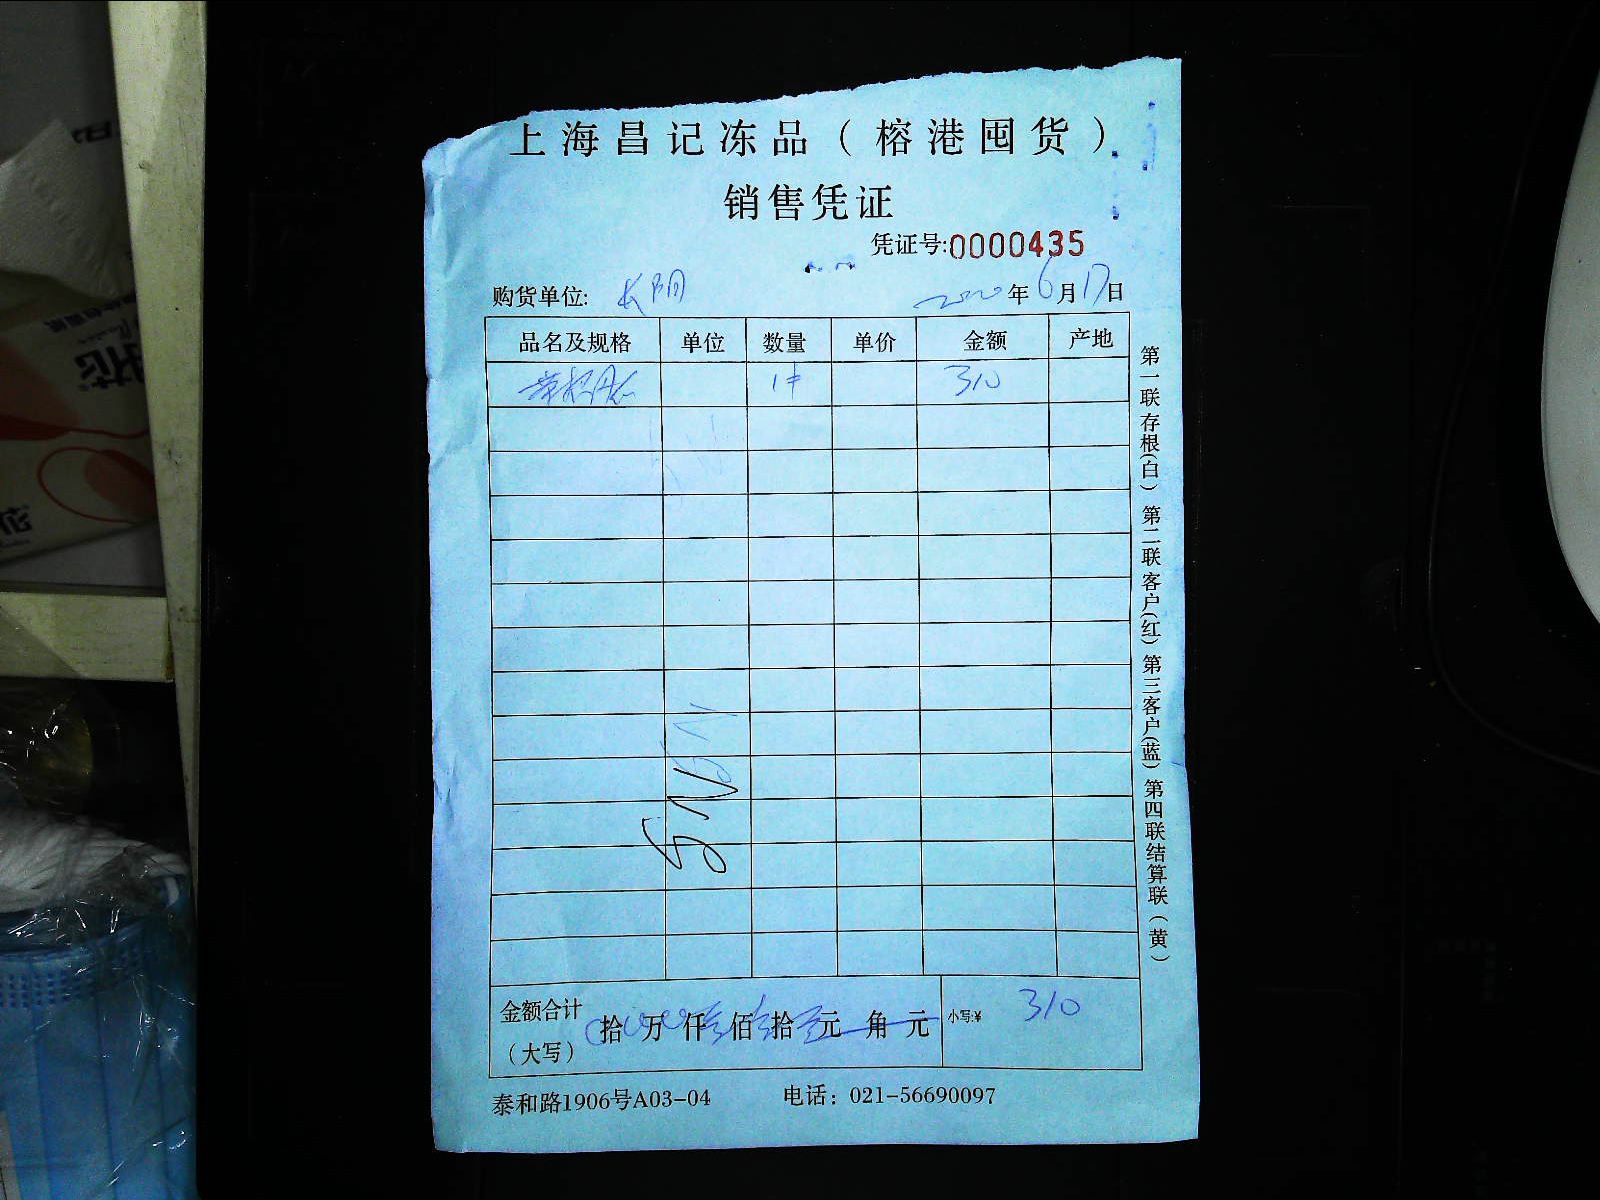 上海昌记冻品（榕港囤货）
销售凭证
凭证号:0000435
购货单位: 长阴 2020年6月17日
品名及规格 单位 数量 单价 金额 产地
1件 310
金额合计（大写） 拾 万 仟 佰 拾 元 角 元 小写:¥ 310
泰和路1906号A03-04 电话：021-56690097
第一联存根(白) 第二联客户(红) 第三客户(蓝) 第四联结算联(黄)